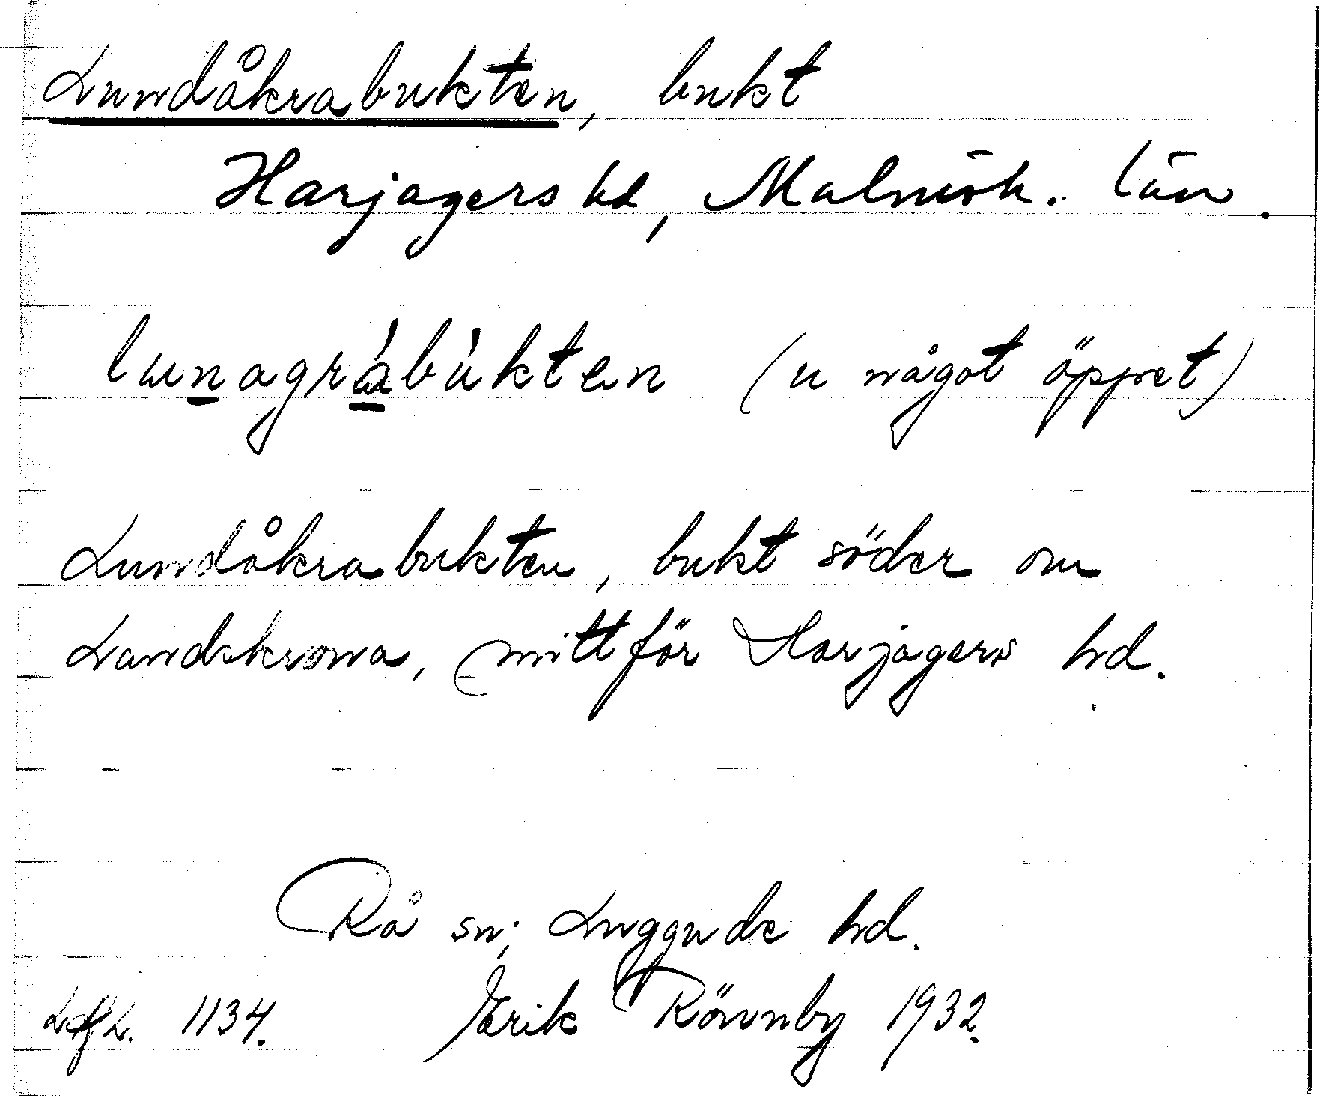 Lundåkrabukten, bukt
Harjagers hd, Malmöh. län.
lunagrábúkten (u något öppet)
Lundåkrabukten, bukt söder om
Landskrona, mittför Harjagers hd.
Rå sn; Luggude hd.
1134. Erik Rönnby 1932.